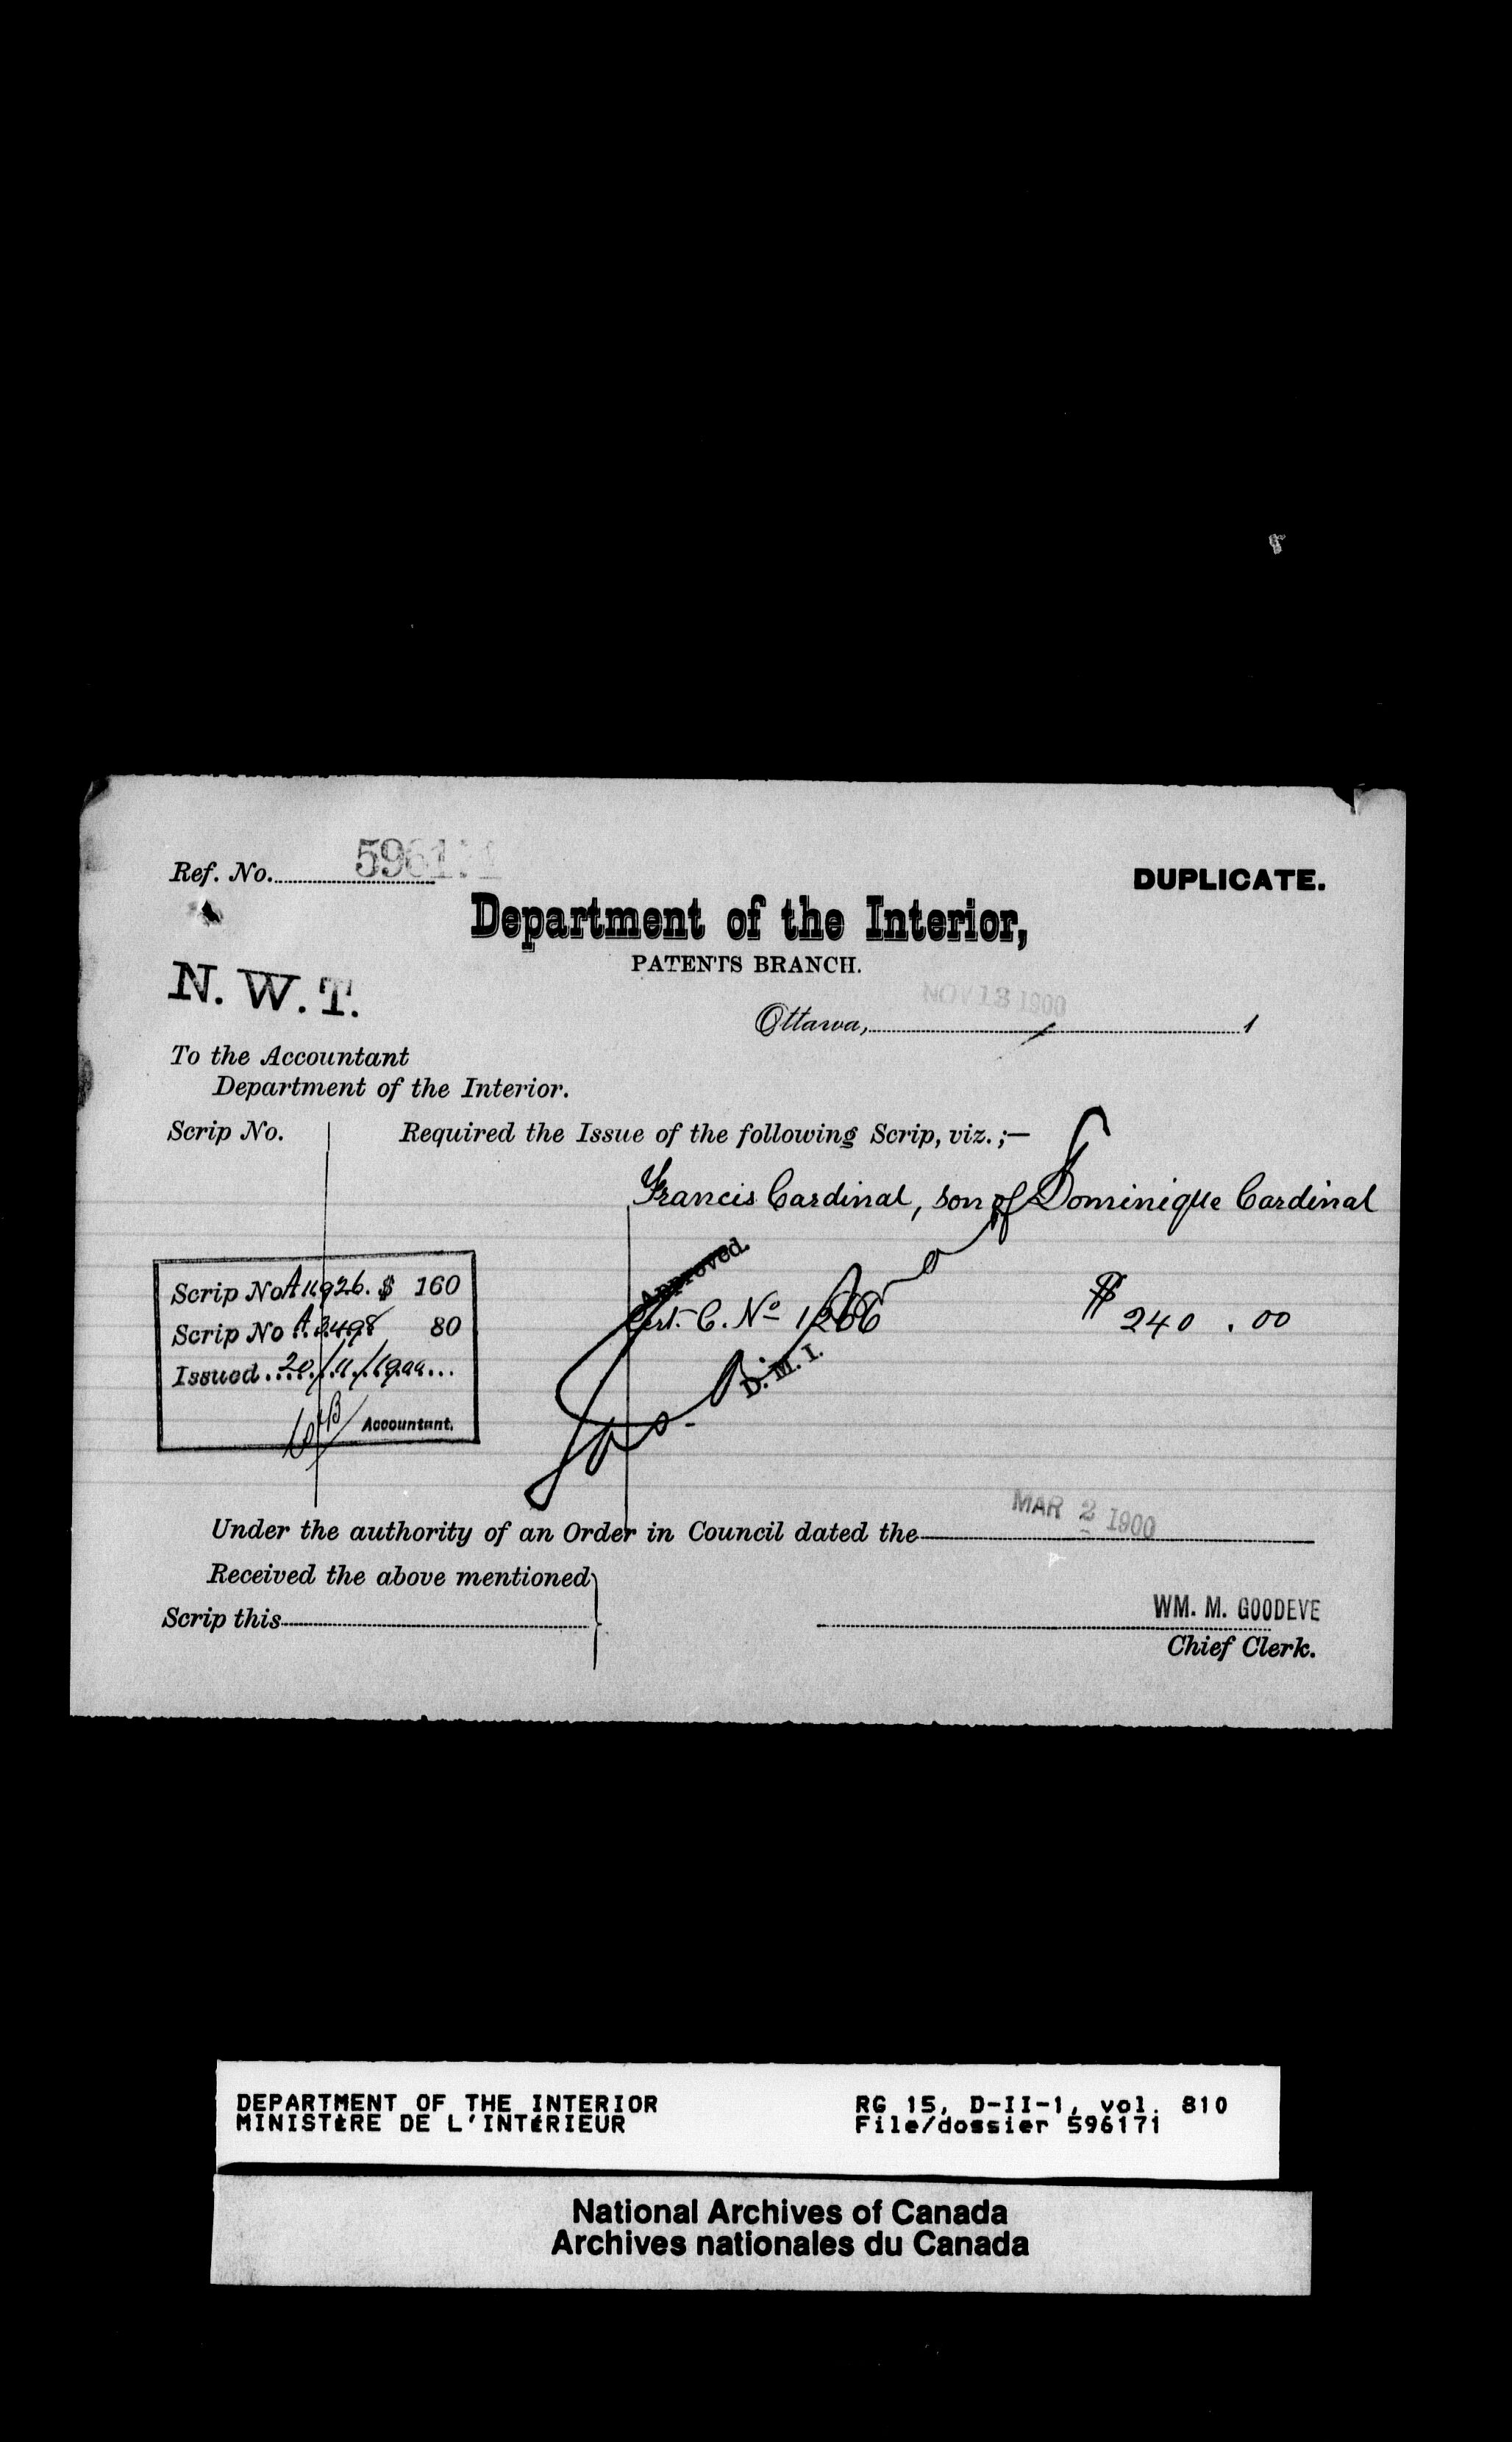 Ref. No. 596171
DUPLICATE.
Department of the Interior,
PATENTS BRANCH.
N. W. T.
NOV 13 1900
Ottawa, 1
To the Accountant
Department of the Interior.
Scrip No. Required the Issue of the following Scrip, viz. ;—
Francis Cardinal, son of Dominique Cardinal
Approved.
Scrip No A 11926. $ 160
Cert. C. No 1266 $ 240 . 00
Scrip No A 3498 80
D. M. I.
Issued 20/11/1900
Accountant.
MAR 2 1900
Under the authority of an Order in Council dated the
Received the above mentioned
Scrip this
WM. M. GOODEVE
Chief Clerk.
DEPARTMENT OF THE INTERIOR RG 15, D-II-1, vol. 810
MINISTÈRE DE L'INTÉRIEUR File/dossier 596171
National Archives of Canada
Archives nationales du Canada